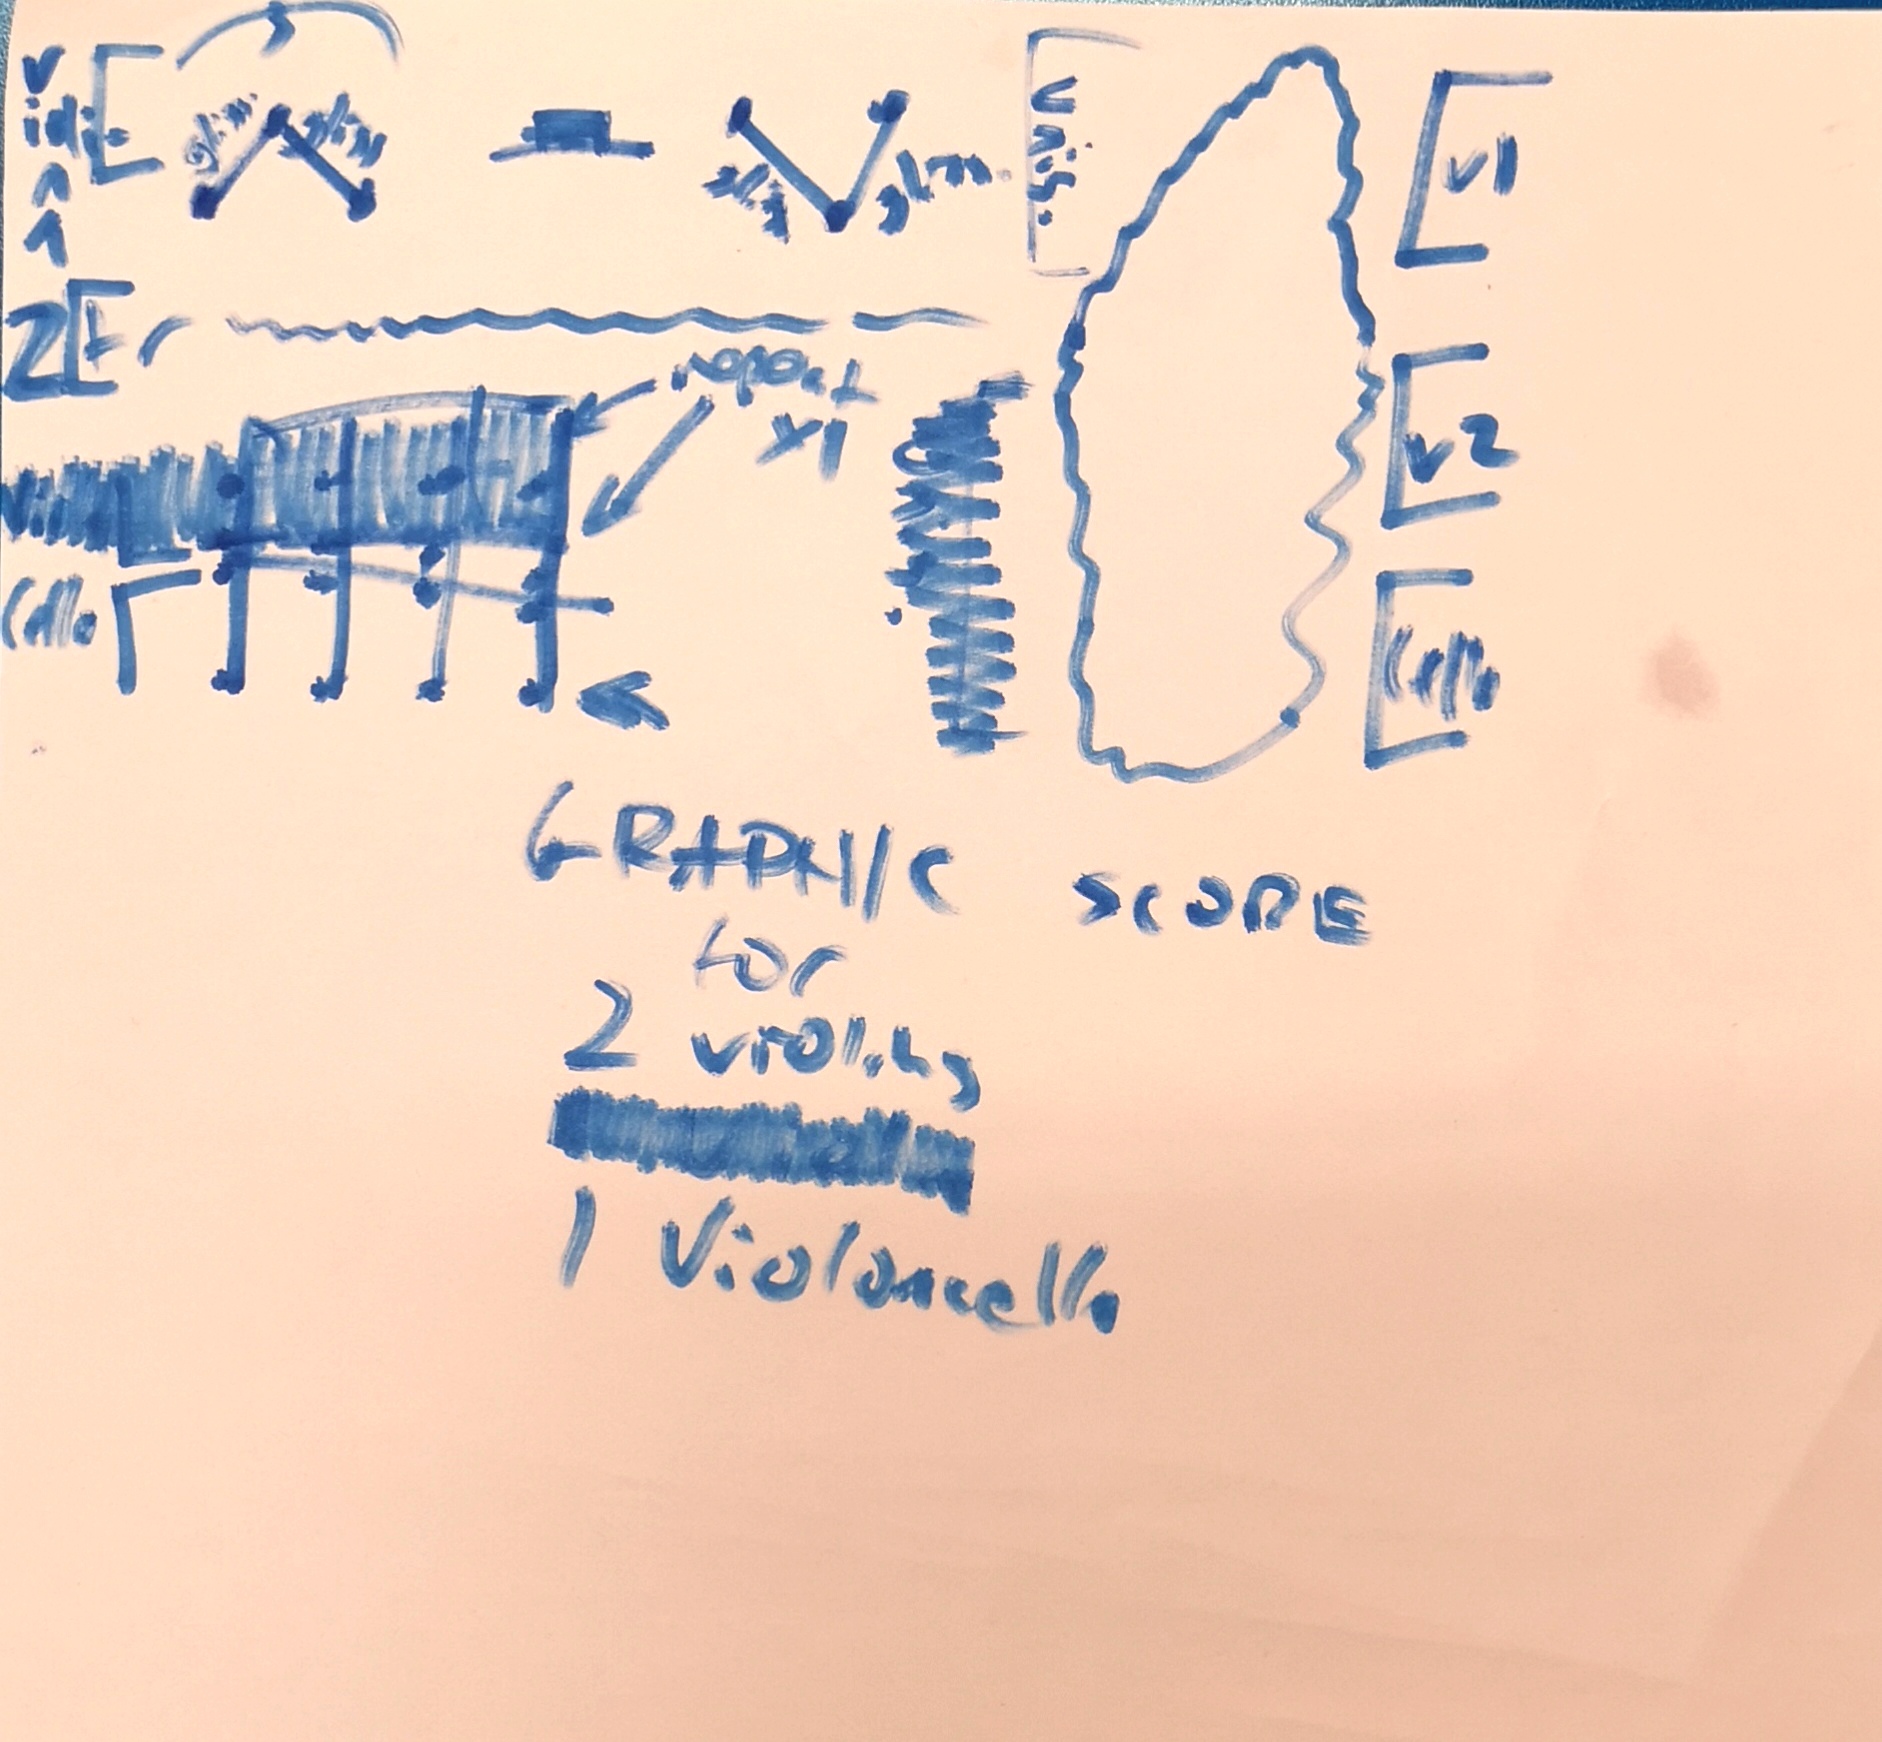 3
gliss.
gliss.
gliss.
gliss.
Unis.
v1
2
tr
v2
Cello
Cello
GRAPHIC SCORE
for
2 violins
1 Violoncello